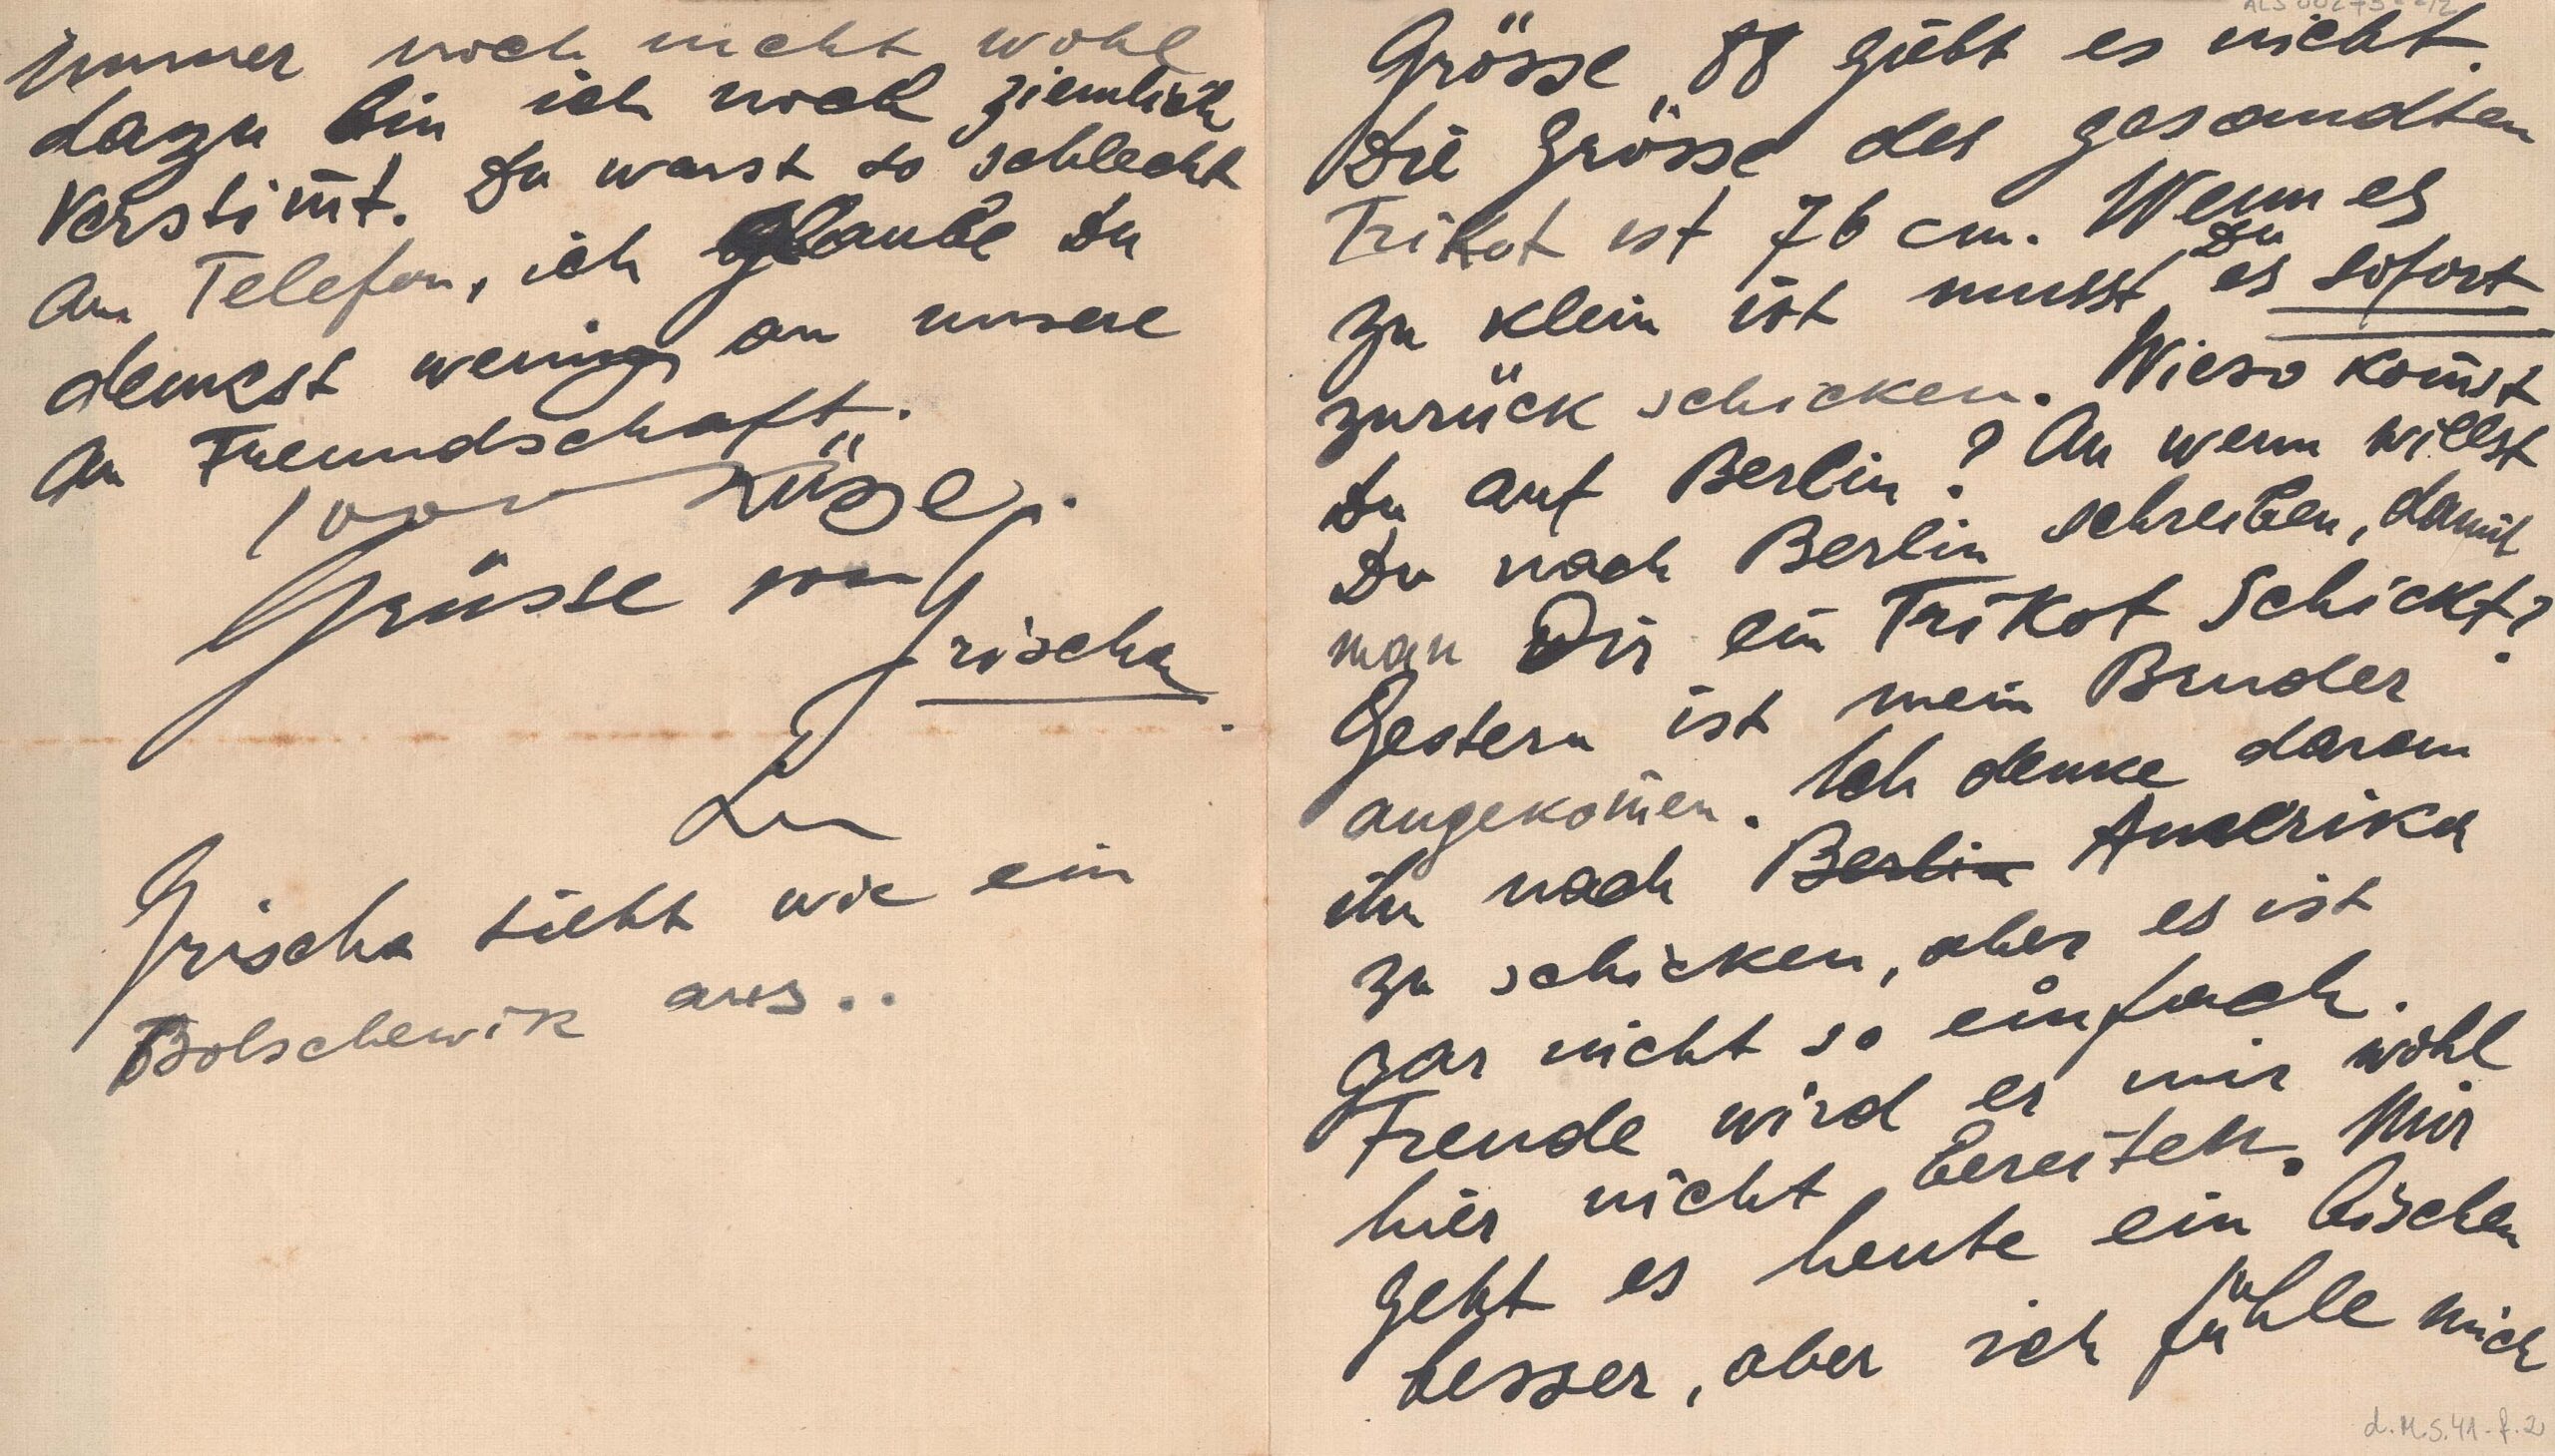 Grösse 88 giebt es nicht.
Die Grösse des gesandten
Trikot ist 76 cm. Wenn es
zu klein ist musst Du es sofort
zurück schicken. Wieso kom̄st
Du auf Berlin? An wenn willst
Du nach Berlin schreiben, damit
man Dir ein Trikot schickt?
Gestern ist mein Bruder
angekom̄en. Ich denke daran
ihn nach Berlin Amerika
zu schicken, aber es ist
gar nicht so einfach.
Freude wird er mir wohl
hier nicht bereiten. Mir
geht es heute ein bischen
besser, aber ich fühle mich
d.M.S.41-f.2
immer noch nicht wohl
dazu bin ich noch ziemlich
verstim̄t. Du warst so schlecht
am Telefon, ich glaube Du
denkst wenig an unsere
an Freundschaft.
1000 Küsse
Grüsse von
Grischa
Grischa sieht wie ein
Bolschewik aus..